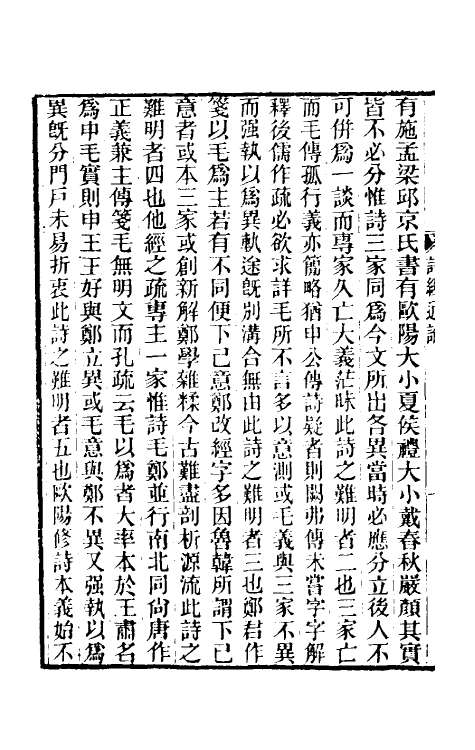 有施孟梁邱京氏書有歐陽大小夏侯禮大小戴春秋嚴顏其實
皆不必分惟詩三家同爲今文所出各異當時必應分立後人不
可倂爲一談而專家久亡大義茫昧此詩之難明者二也三家亡
而毛傳孤行義亦簡略猶申公傳詩疑者則闕弗傳未嘗字字解
釋後儒作疏必欲求詳毛所不言多以意測或毛義與三家不異
而强執以爲異軌途旣別溝合無由此詩之難明者三也鄭君作
箋以毛爲主若有不同便下己意鄭改經字多因魯韓所謂下己
意者或本三家或創新解鄭學雜糅今古難盡剖析源流此詩之
難明者四也他經之疏專主一家惟詩毛鄭並行南北同尙唐作
正義兼主傳箋毛無明文而孔疏云毛以爲者大率本於王肅名
爲申毛實則申王王好與鄭立異或毛意與鄭不異又强執以爲
異旣分門戶未易折衷此詩之難明者五也歐陽修詩本義始不